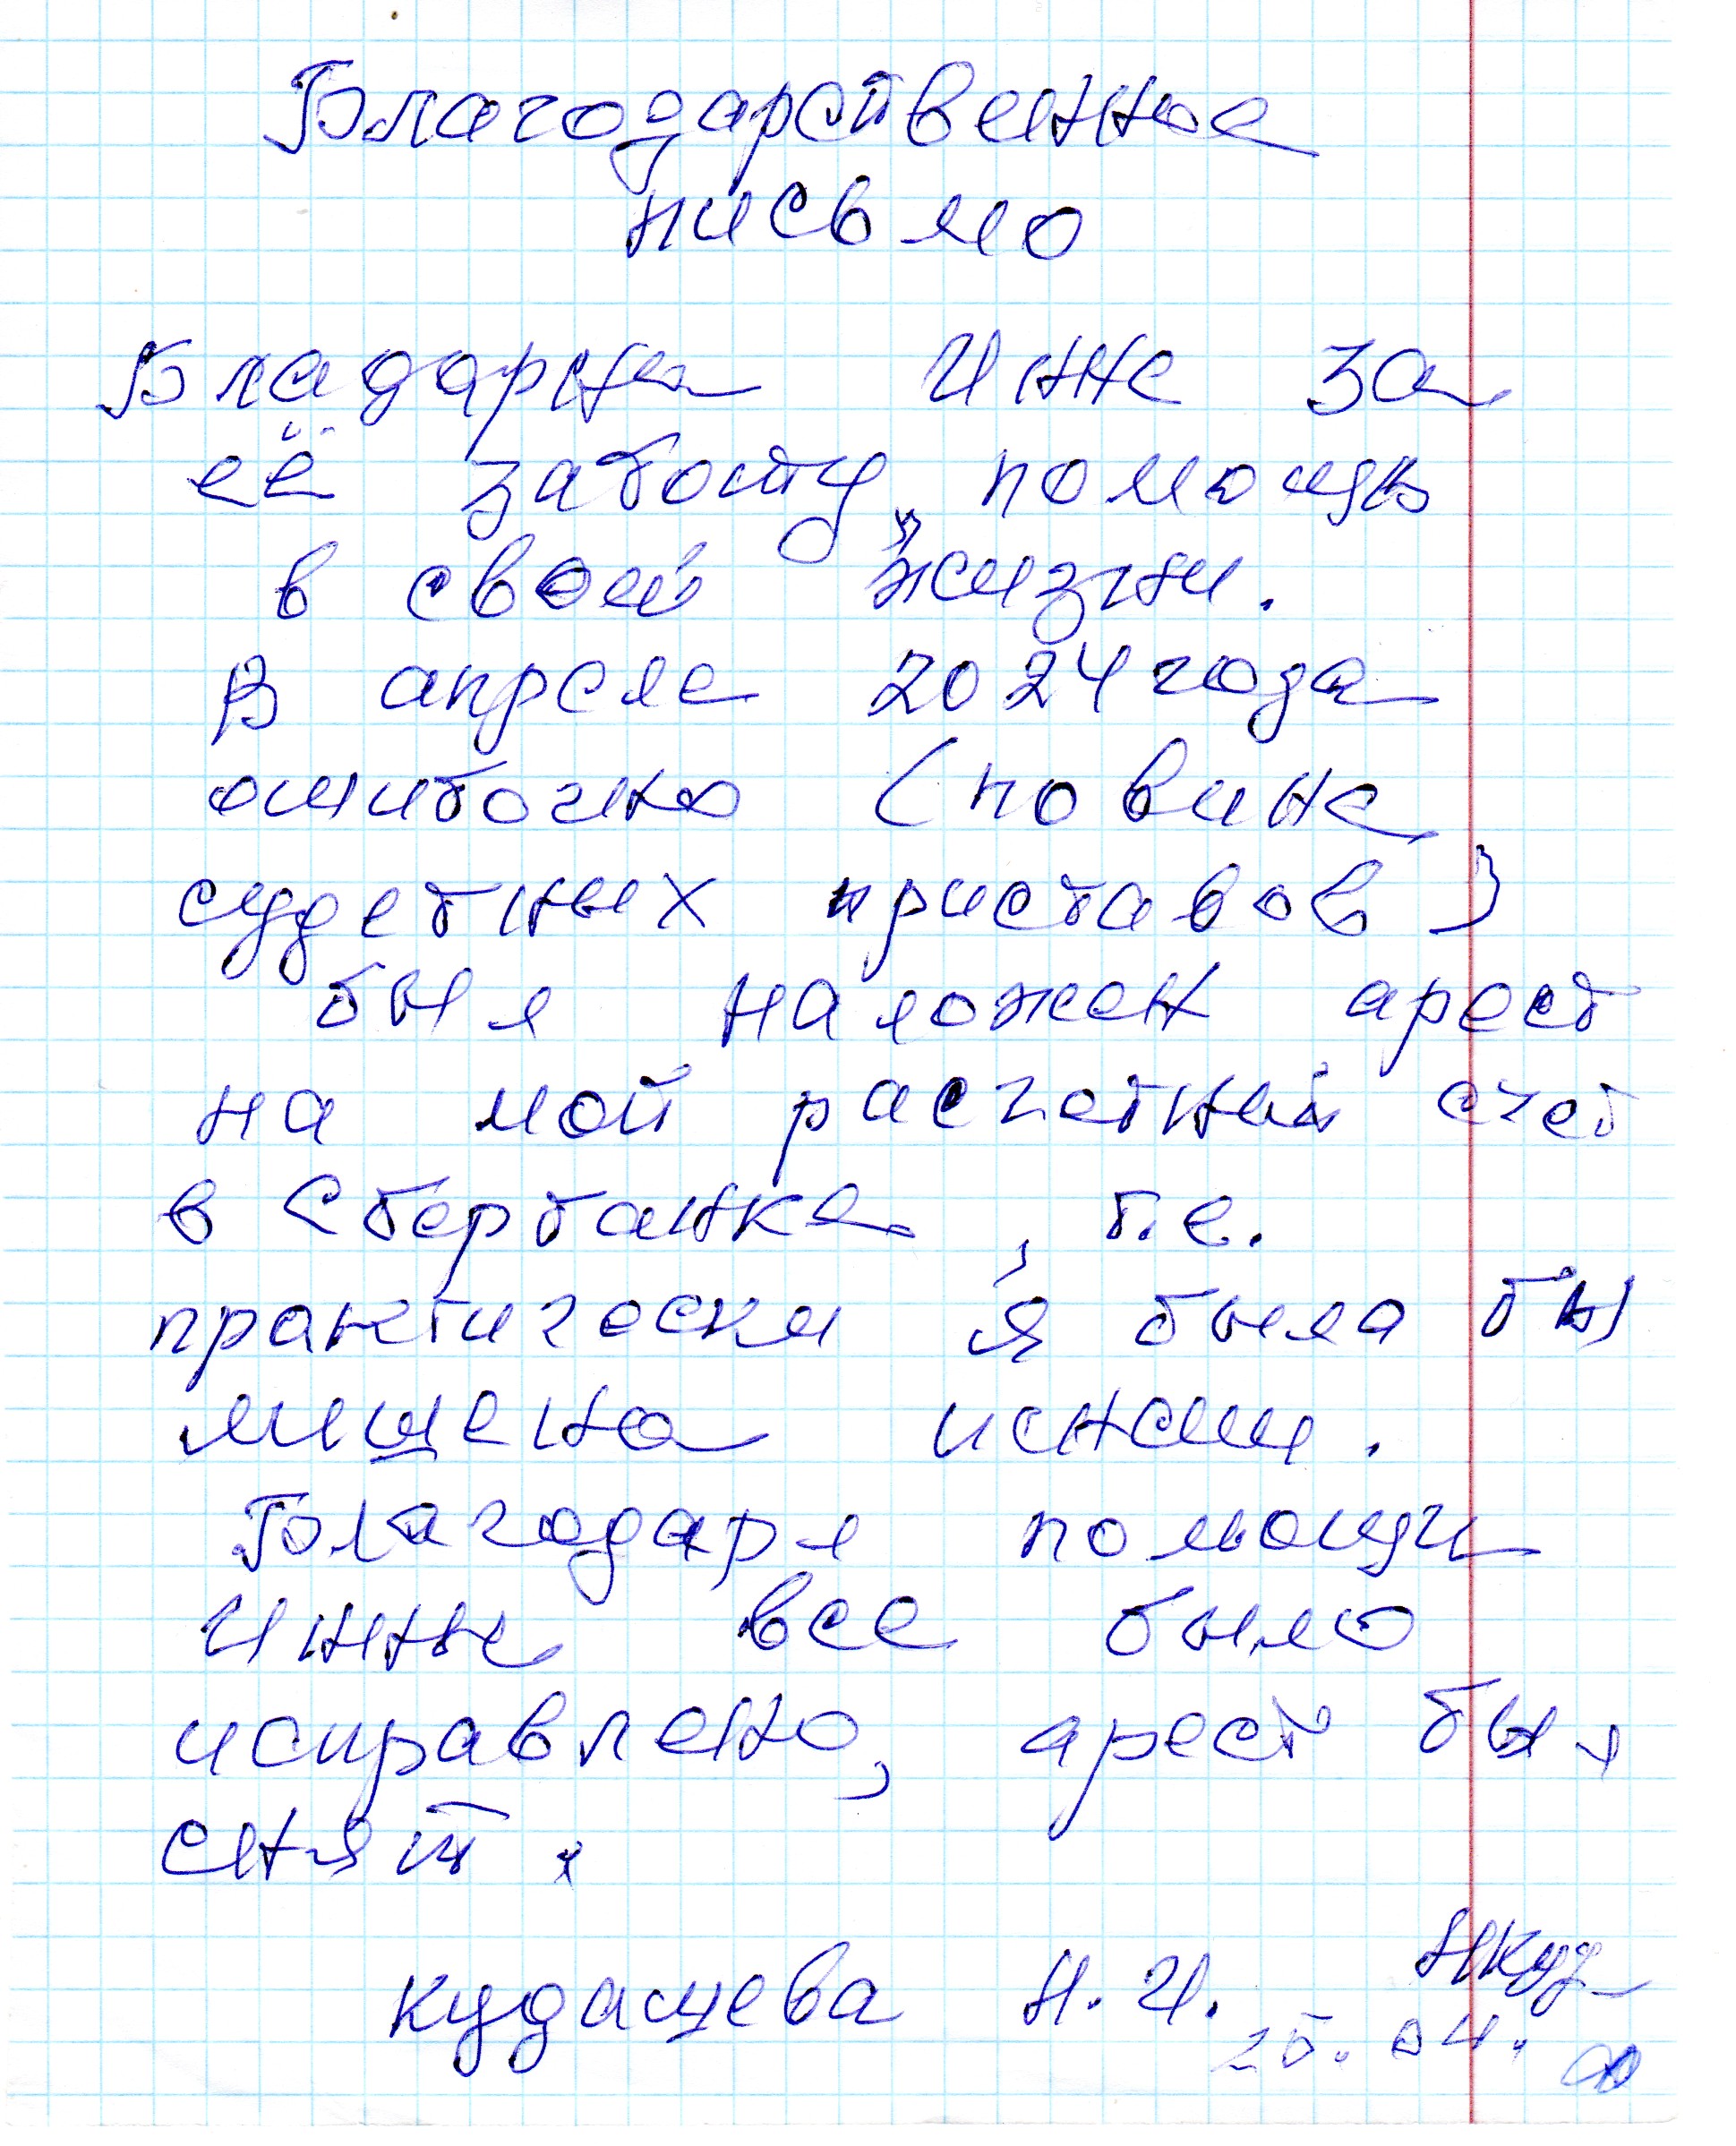 Благодарственное
письмо
Бладарна Инне за
её заботу, помощь
в своей жизни.
В апреле 2024 года
ошибочно (по вине
судебных приставов)
был наложен арест
на мой расчетный счет
в Сбербанке, т.е.
практически я была бы
лишена пенсии.
Благодаря помощи
Инны все было
исправлено, арест был
снят.
Кудашева Н.И.
25.04.